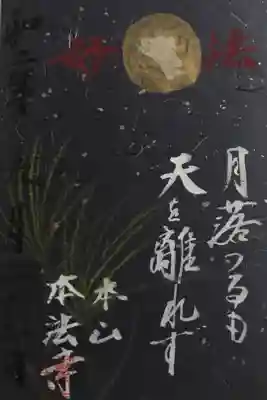 妙法
月落つるも
天を離れず
本山
本法寺